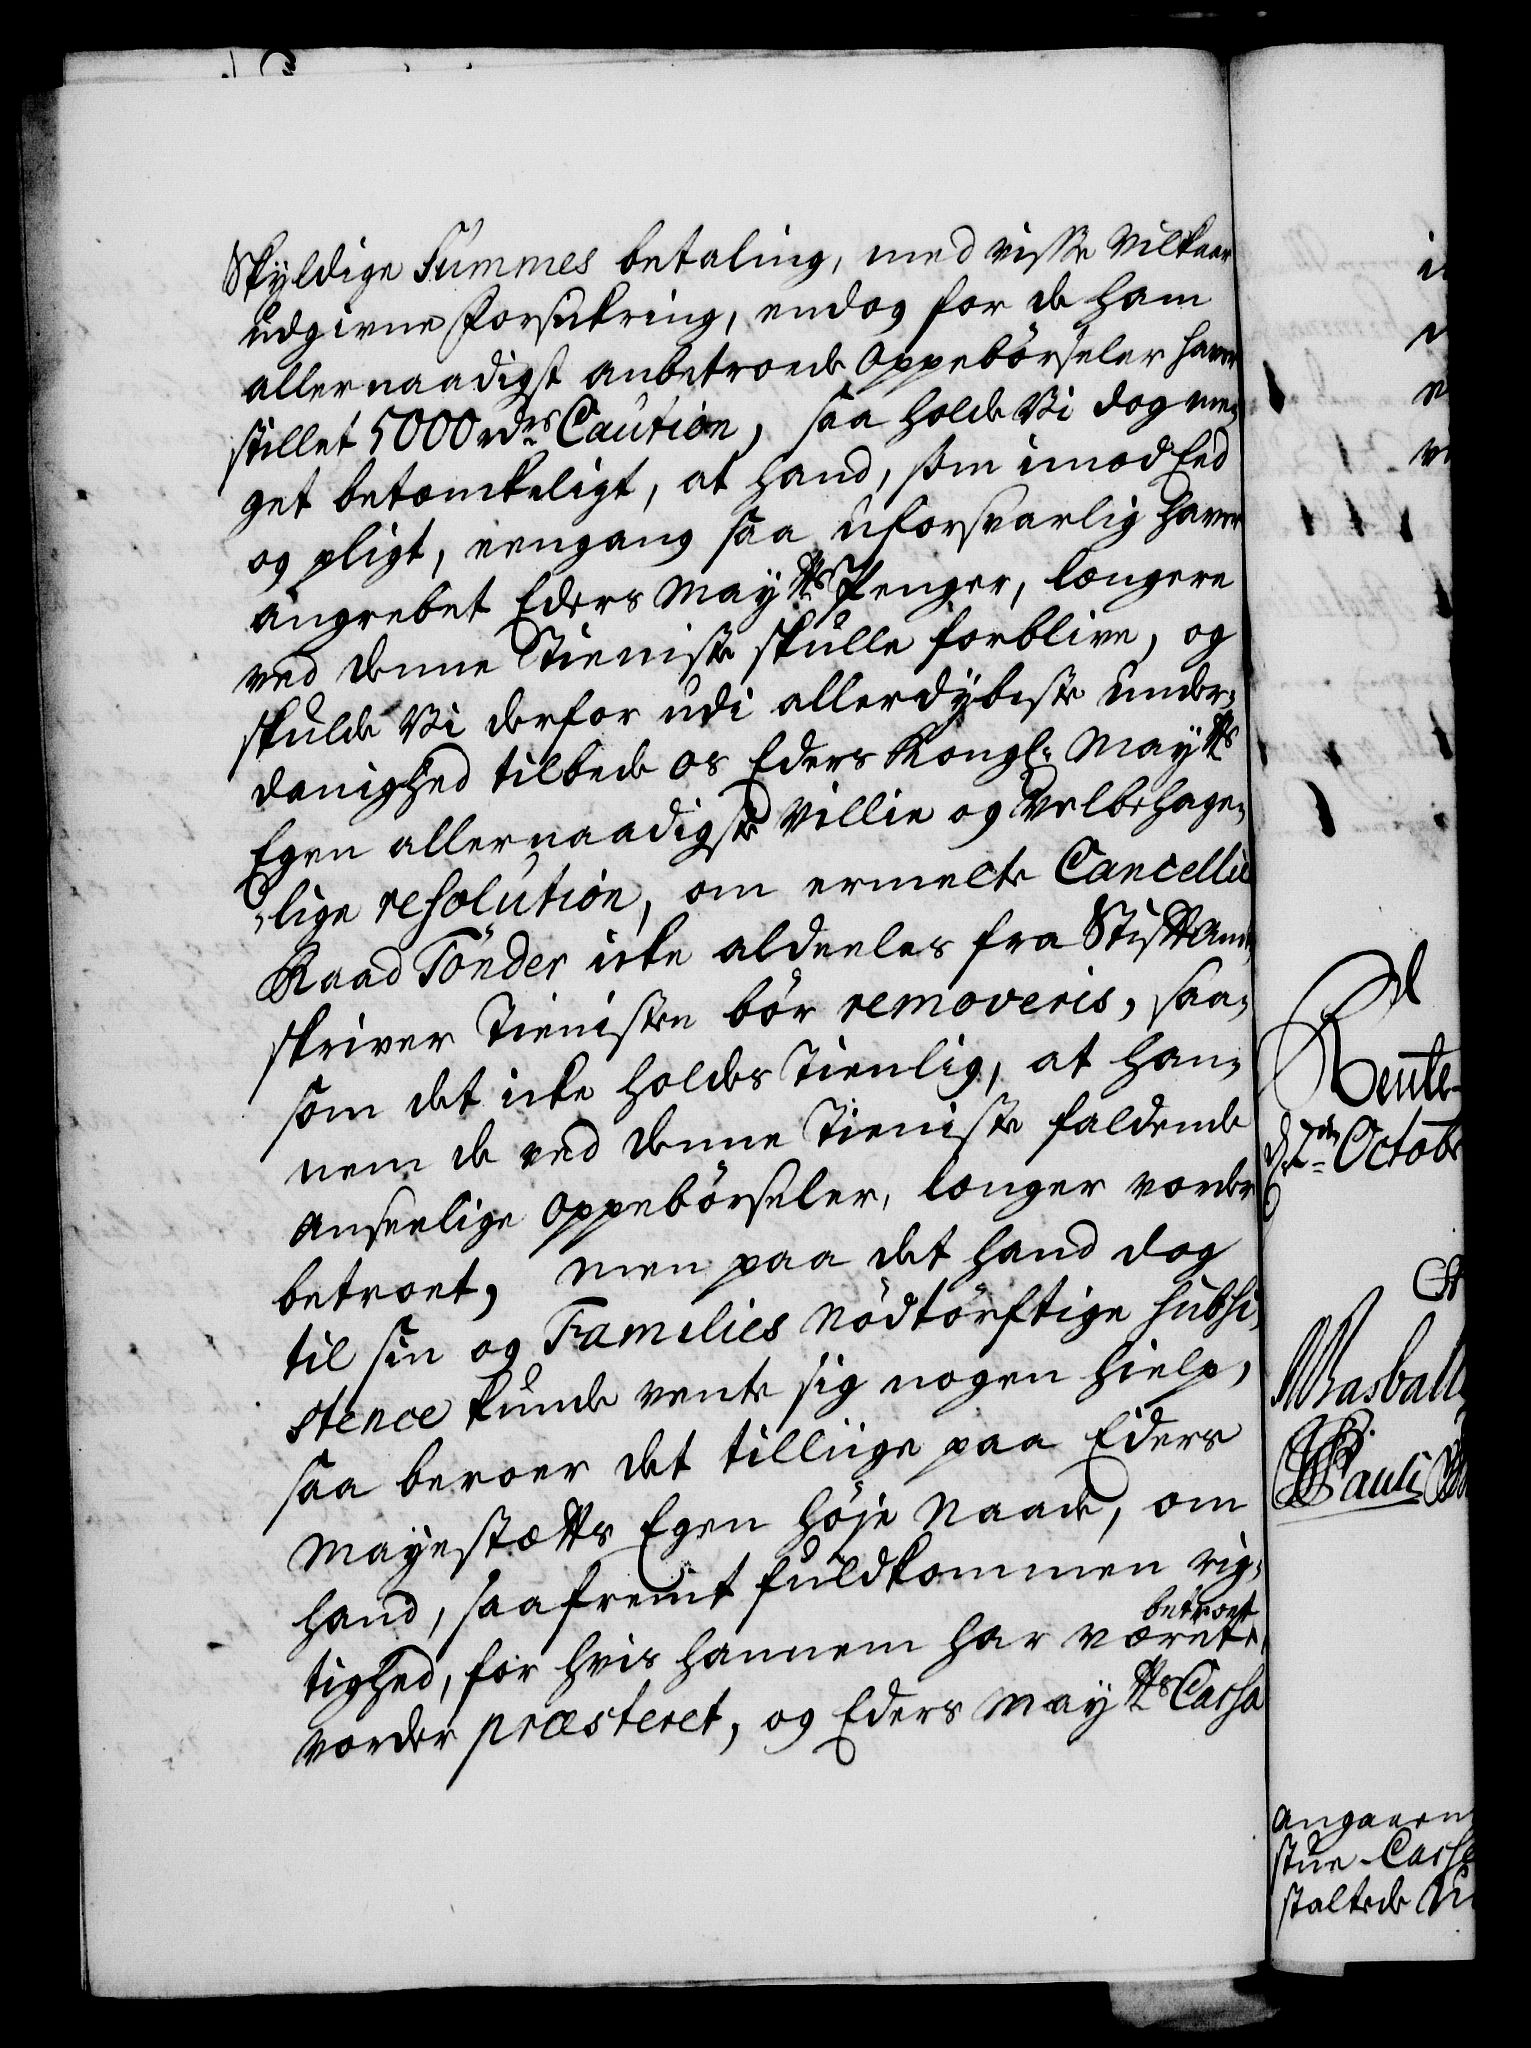 Skyldige Summes betaling, med visse Vilkaar
udgivne Forsickring, endog for de ham
allernaadigst anbetroede Oppebörseler haver
stillet 5000 rdrs Caution, saa holde Vi dog me¬
get betænckeligt, at hand, som imod Eed
og pligt, eengang saa uforsvarlig haver
angrebet Eders Mayts Penger, længere
ved denne Tieniste skulle forblive, og
skulde Vi derfor udi allerdybeste under¬
danighed tilbede os Eders Kongl. Mayts
Egen allernaadigste Villie og Velbehage¬
lige resolution, om ermelte Cancellie
Raad Tönder icke aldeeles fra Stiftamt¬
skriver Tienisten bör removeris, saa¬
som det icke holdes Tienlig, at han¬
nem de ved denne Tieniste faldende
anseelige Oppebörseler, længer vorder
betroet, men paa det hand dog
til sin og Families Nödtörftige subsi¬
stence kunde vente sig nogen hielp,
saa beroer det tilliige paa Eders
Mayestætts Egen höje Naade, om
hand, saafremt fuldkommen rig¬
betroet
tighed, for hvis hannem har været,
vorder præsteret, og Eders Mayts Cassa
Rente-
d. 7de Octobr
Pauli
angaaen
stue-Cass
staltede